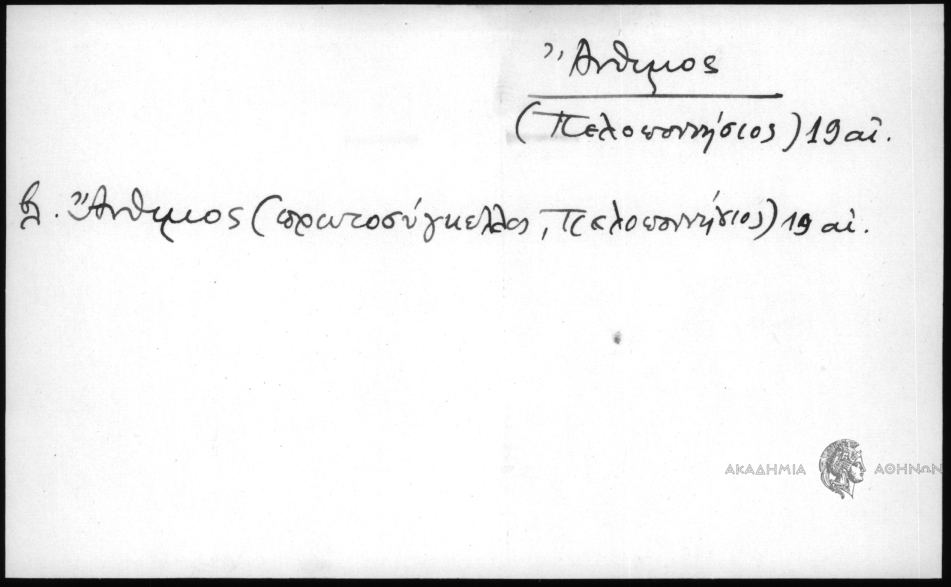 Ἄνθιμος
(Πελοποννήσιος) 19 αἰ.
βλ. Ἄνθιμος (πρωτοσύγκελλος, Πελοποννήσιος) 19 αἰ.
ΑΚΑΔΗΜΙΑ ΑΘΗΝΩΝ